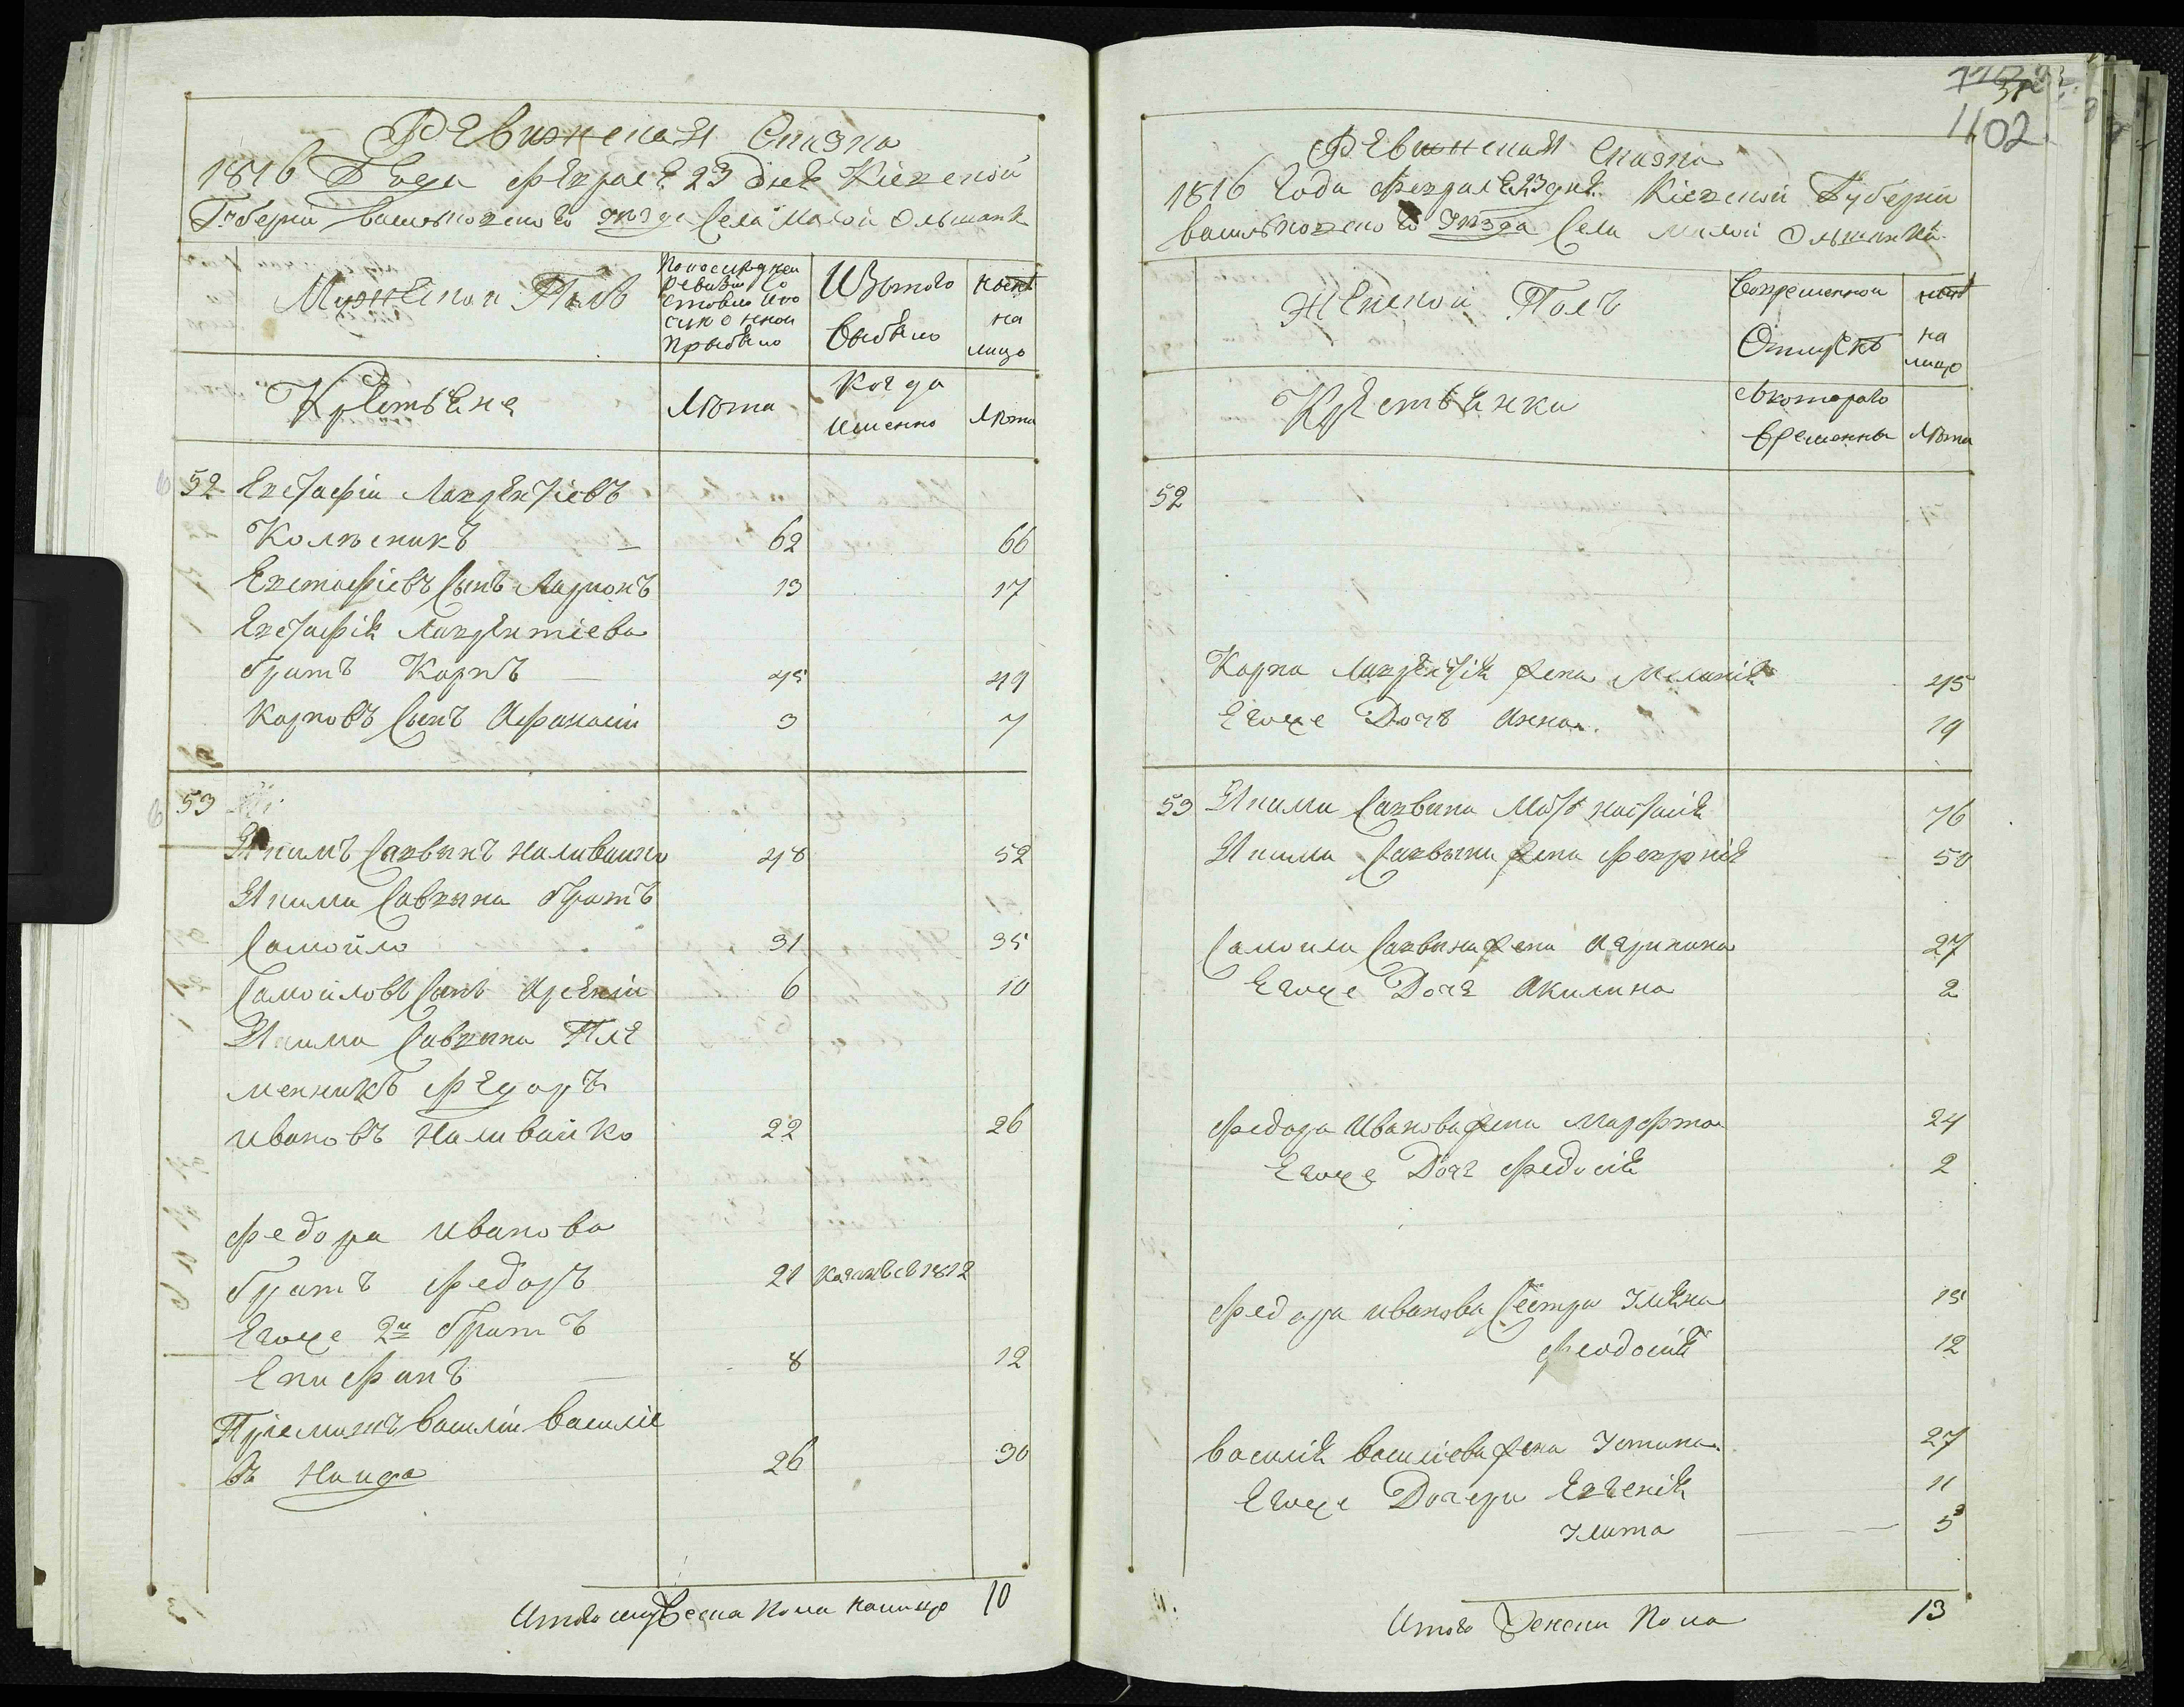 Ревижская Сказка
1816 Года февраля 23 дня Кіевской
Губерни васильковского уезда Села Малой Ольшанки
Мужеской Полъ
По последней
ревизии Со
стояло и по
оной
прибыло
Изътого
выбыло
ныне
на
лицо
Крестьяне
Лѣта
Когда
именно
Лѣта
52 Евстафіи Лаврентіевъ
Колѣсникъ — 62 66
Евстафіевъ Сынъ Ларионъ 13 17
Евстафія Лаврентіева
братъ Карпъ — 45 49
Карповъ Сынъ Афанасіи 3 7
53
Якимъ Саввинъ Наливайко 48 52
Якима Саввина братъ
Самойло 31 35
Самойловъ Сынъ Арсеніи 6 10
Якима Саввина Пле
менникъ Федоръ
Ивановъ Наливайко 22 26
Федора Иванова
братъ Федоръ 21 1812
Егоже 2й братъ
Епифанъ — 8 12
Пріемышъ Василіи Василіе
въ Найда 26 30
Итого мужеска пола налицо 10
1102
Ревижская Сказка
1816 Года февраля 23 дня Кіевской Губерни
васильковского уезда Села Малой Ольшанки
Женской Полъ
Вовременной
Отлучкѣ
ныне
на
лицо
Крестьянки
Скоторого
времены
Лѣта
52
Карпа Лаврентія жена Меланія 45
Егоже Дочь Анна. 19
53 Якима Саввина Мать Настасія 76
Якима Саввина жена Феврнія 50
Самоила Саввина жена Агрипина 27
Егоже Дочь Акилина 2
Федора Иванова жена Марфта 24
Егоже Дочь Федосія 2
Федора Иванова Сестра Улѣяна 15
Феодосія 12
Василія Василіева жена Устина 27
Егоже Дочери Евгенія 11
Улита — — — 5
Итого Женска пола 13